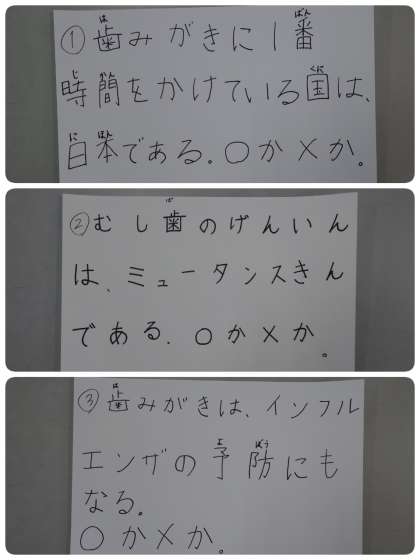 ①歯みがきに1番
時間をかけている国は、
日本である。○か×か。
②むし歯のげんいん
は、ミュータンスきん
である。○か×か。
③歯みがきは、インフル
エンザの予防にも
なる。
○か×か。